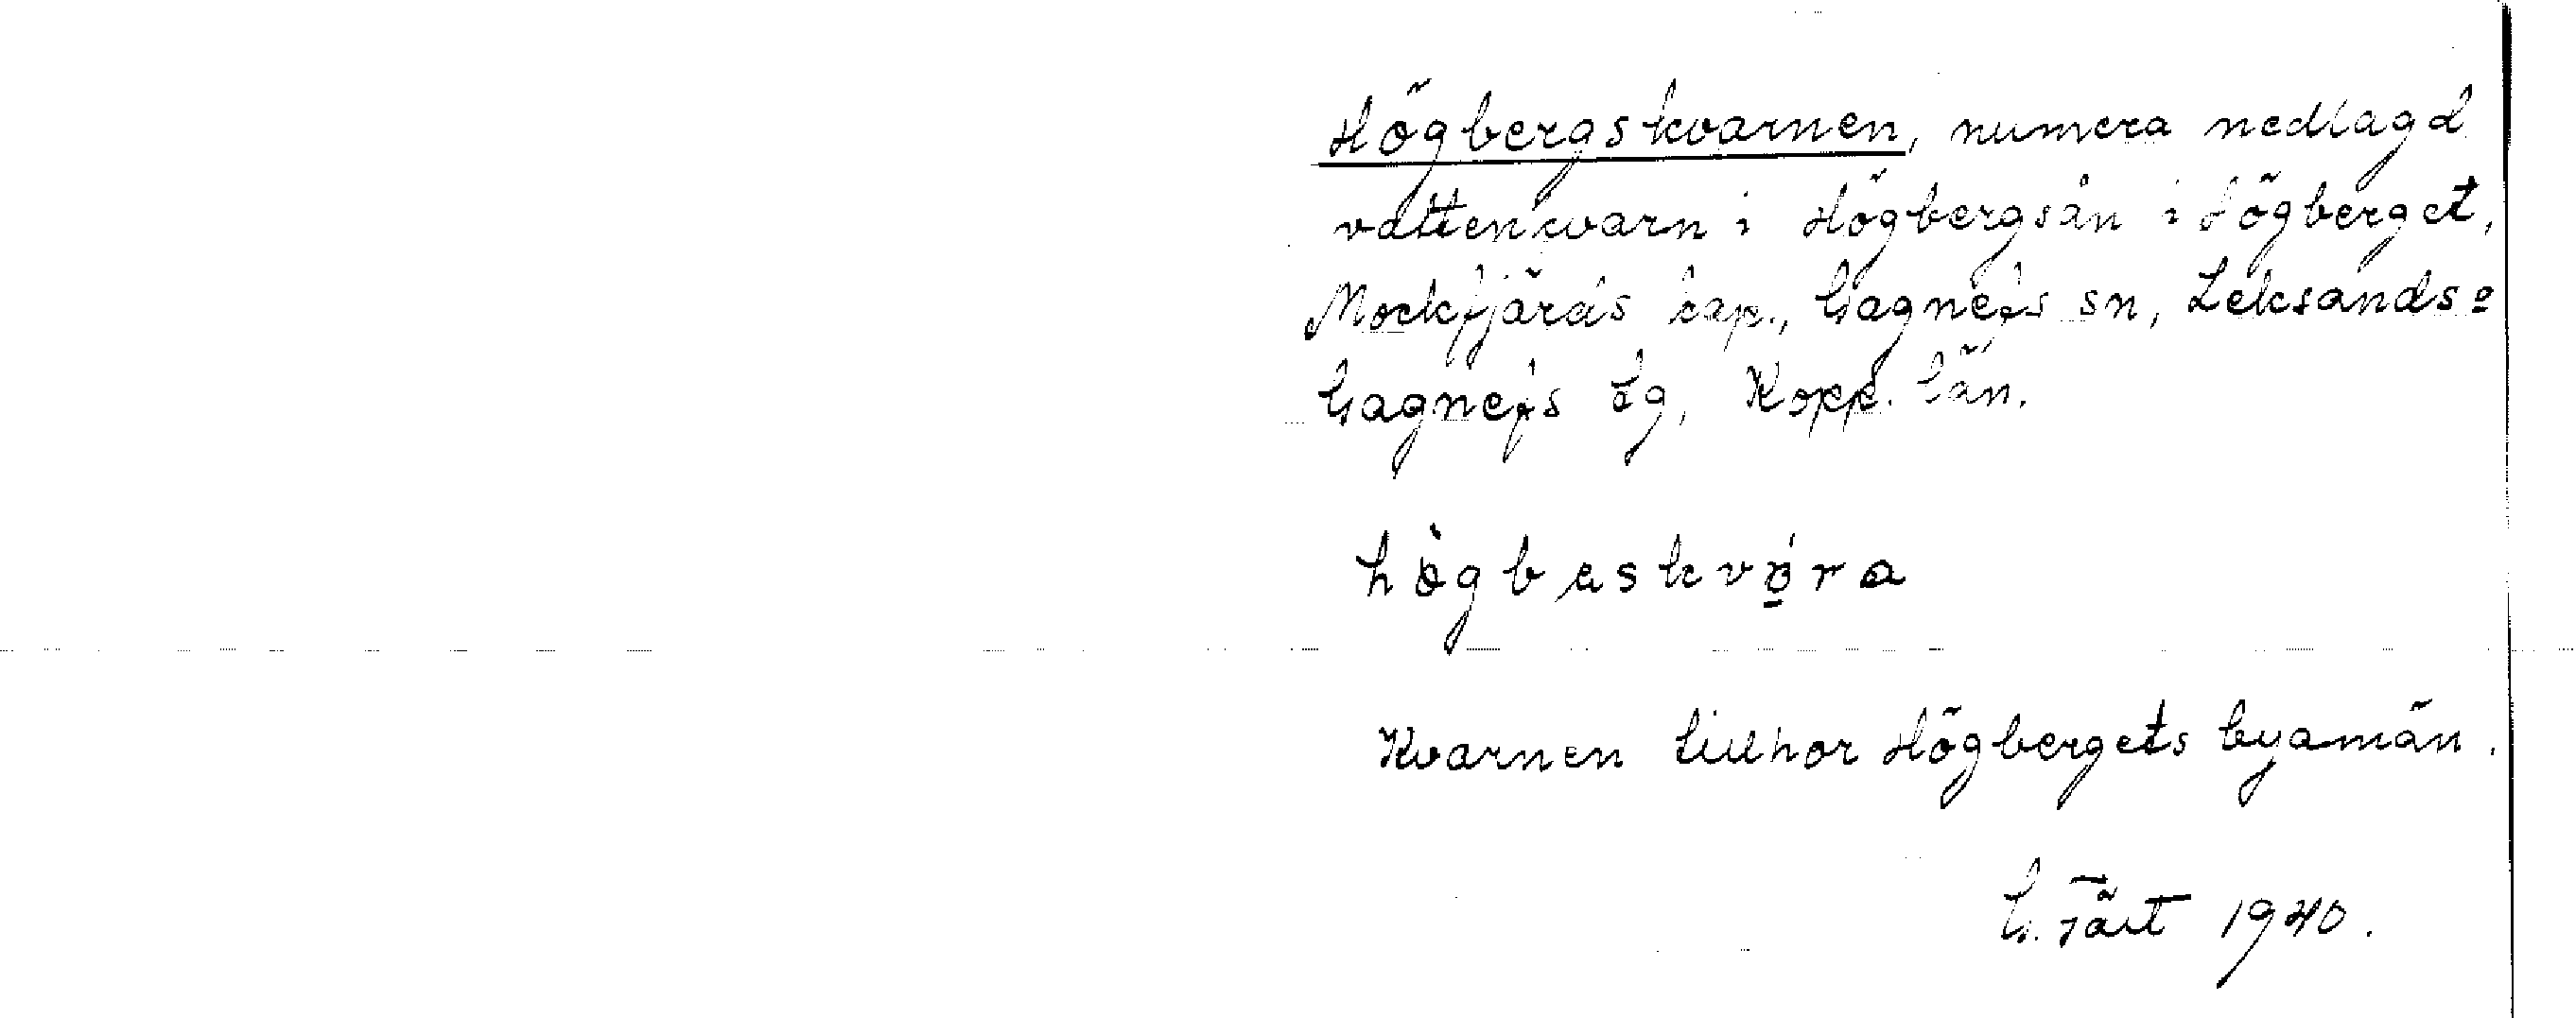 Högbergskvarnen, numera nedlagd
vattenkvarn i Högbergsån i Högberget,
Mockfjärds kap., Gagnefs sn, Leksands-
Gagnefs tg, Kopp. län.
Kvarnen tillhör Högbergets byamän.
G. Täst 1940.